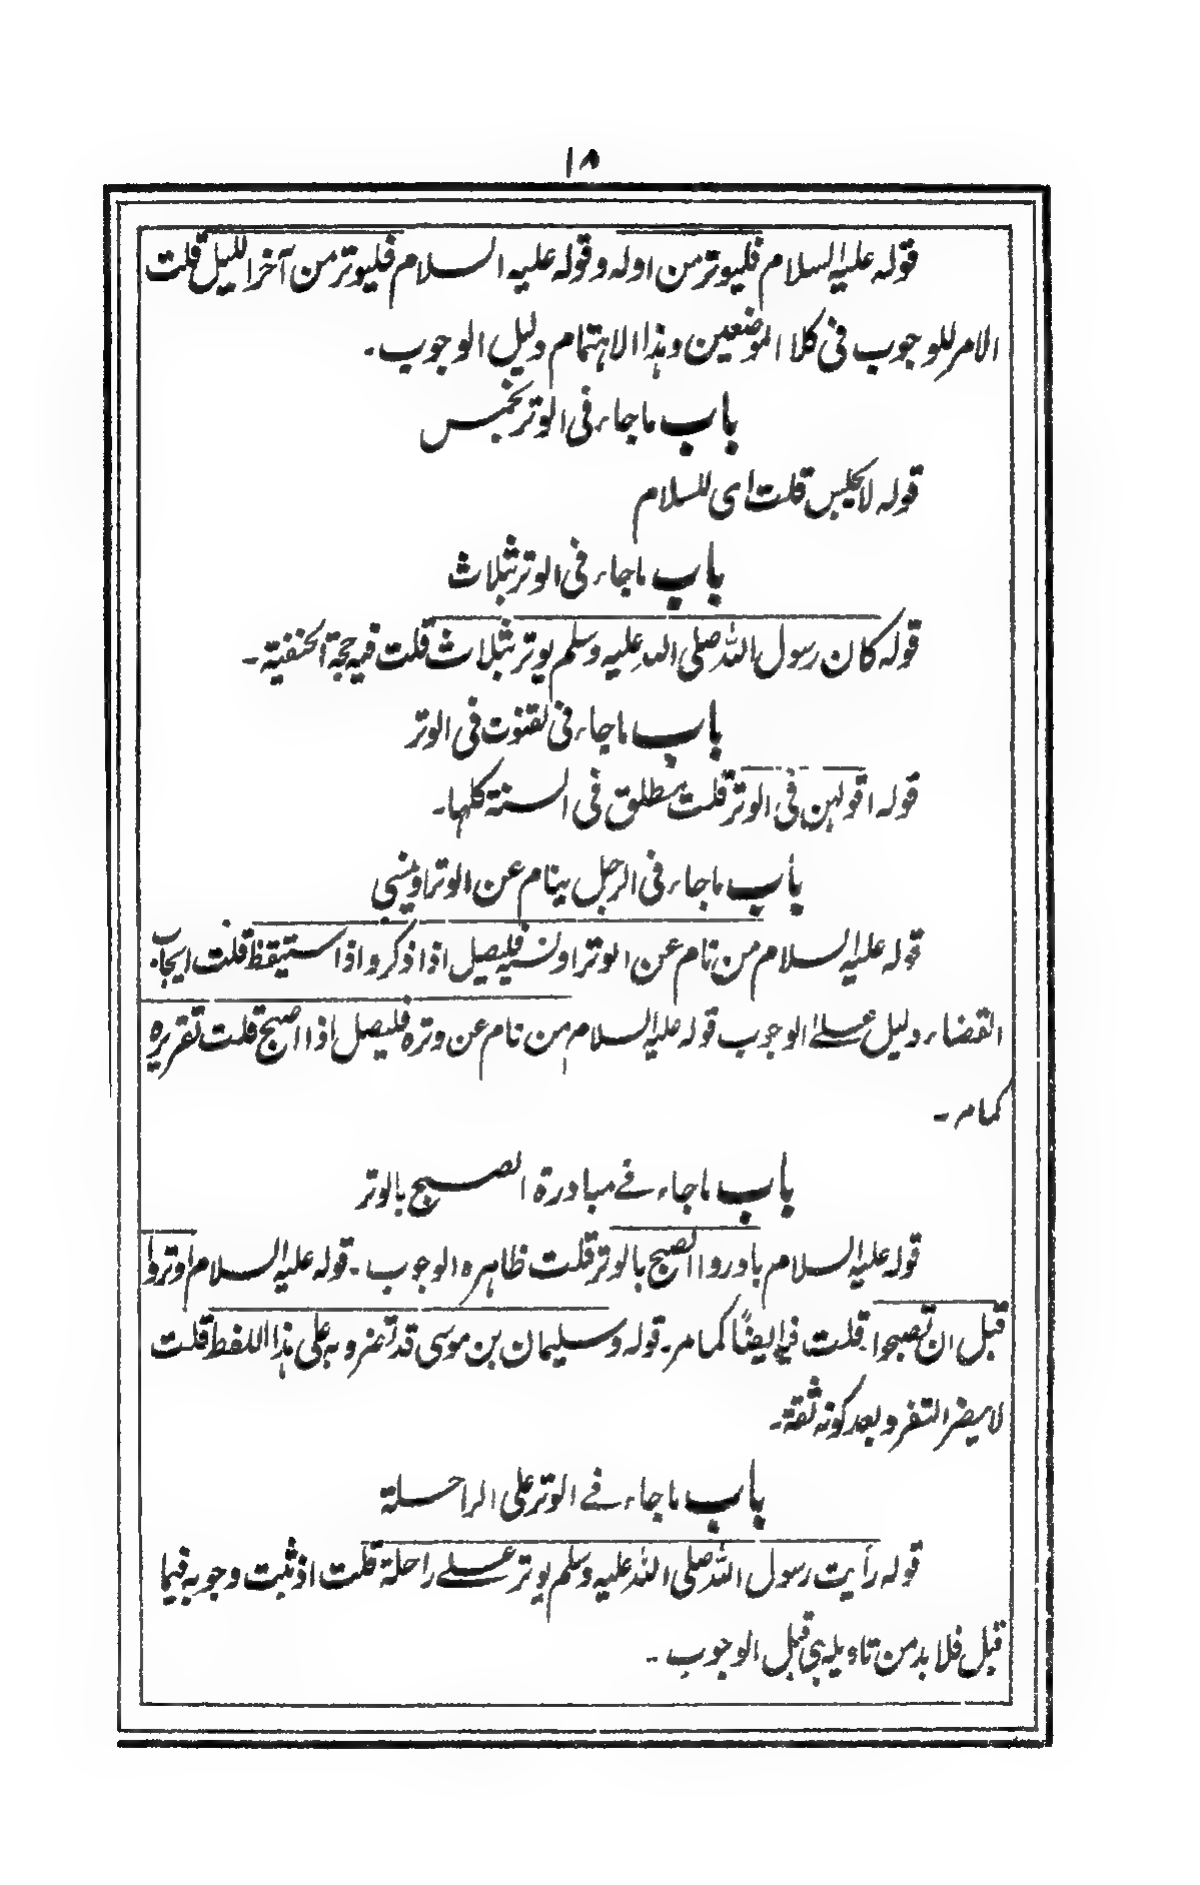 ١٨
قوله عليه السلام فليوتر من اوله وقوله عليه السلام فليوتر من آخر الليل قلت
الامر للوجوب فى كلا الموضعين وهذا الاهتمام دليل الوجوب۔
باب ماجاء فى الوتر بخمس
قوله لا يجلس قلت اى للسلام
باب ماجاء فى الوتر بثلاث
قوله كان رسول الله صلى الله عليه وسلم يوتر بثلاث قلت فيه حجة الحنفية۔
باب ماجاء فى لقنوت فى الوتر
قوله اقولهن فى الوتر قلت مطلق فى السنة كلها۔
باب ماجاء فى الرجل ينام عن الوتر او ينسى
قوله عليه السلام من نام عن الوتر او نسيه فليصل اذا ذكر واذا استيقظ قلت ايجاب
القضاء دليل على الوجوب قوله عليه السلام من نام عن وتره فليصل اذا اصبح قلت تقريره
كما مر۔
باب ماجاء فى مبادرة الصبح بالوتر
قوله عليه السلام بادروا الصبح بالوتر قلت ظاهره الوجوب۔ قوله عليه السلام اوتروا
قبل ان تصبحوا قلت فيه ايضًا كما مر۔ قوله وسليمان بن موسى قد تفرد به على هذا اللفظ قلت
لا يضر التفرد بعد كونه ثقة۔
باب ماجاء فى الوتر على الراحلة
قوله رأيت رسول الله صلى الله عليه وسلم يوتر على راحلة قلت اذ ثبت وجوبه فيما
قبل فلابد من تاويله بى قبل الوجوب۔